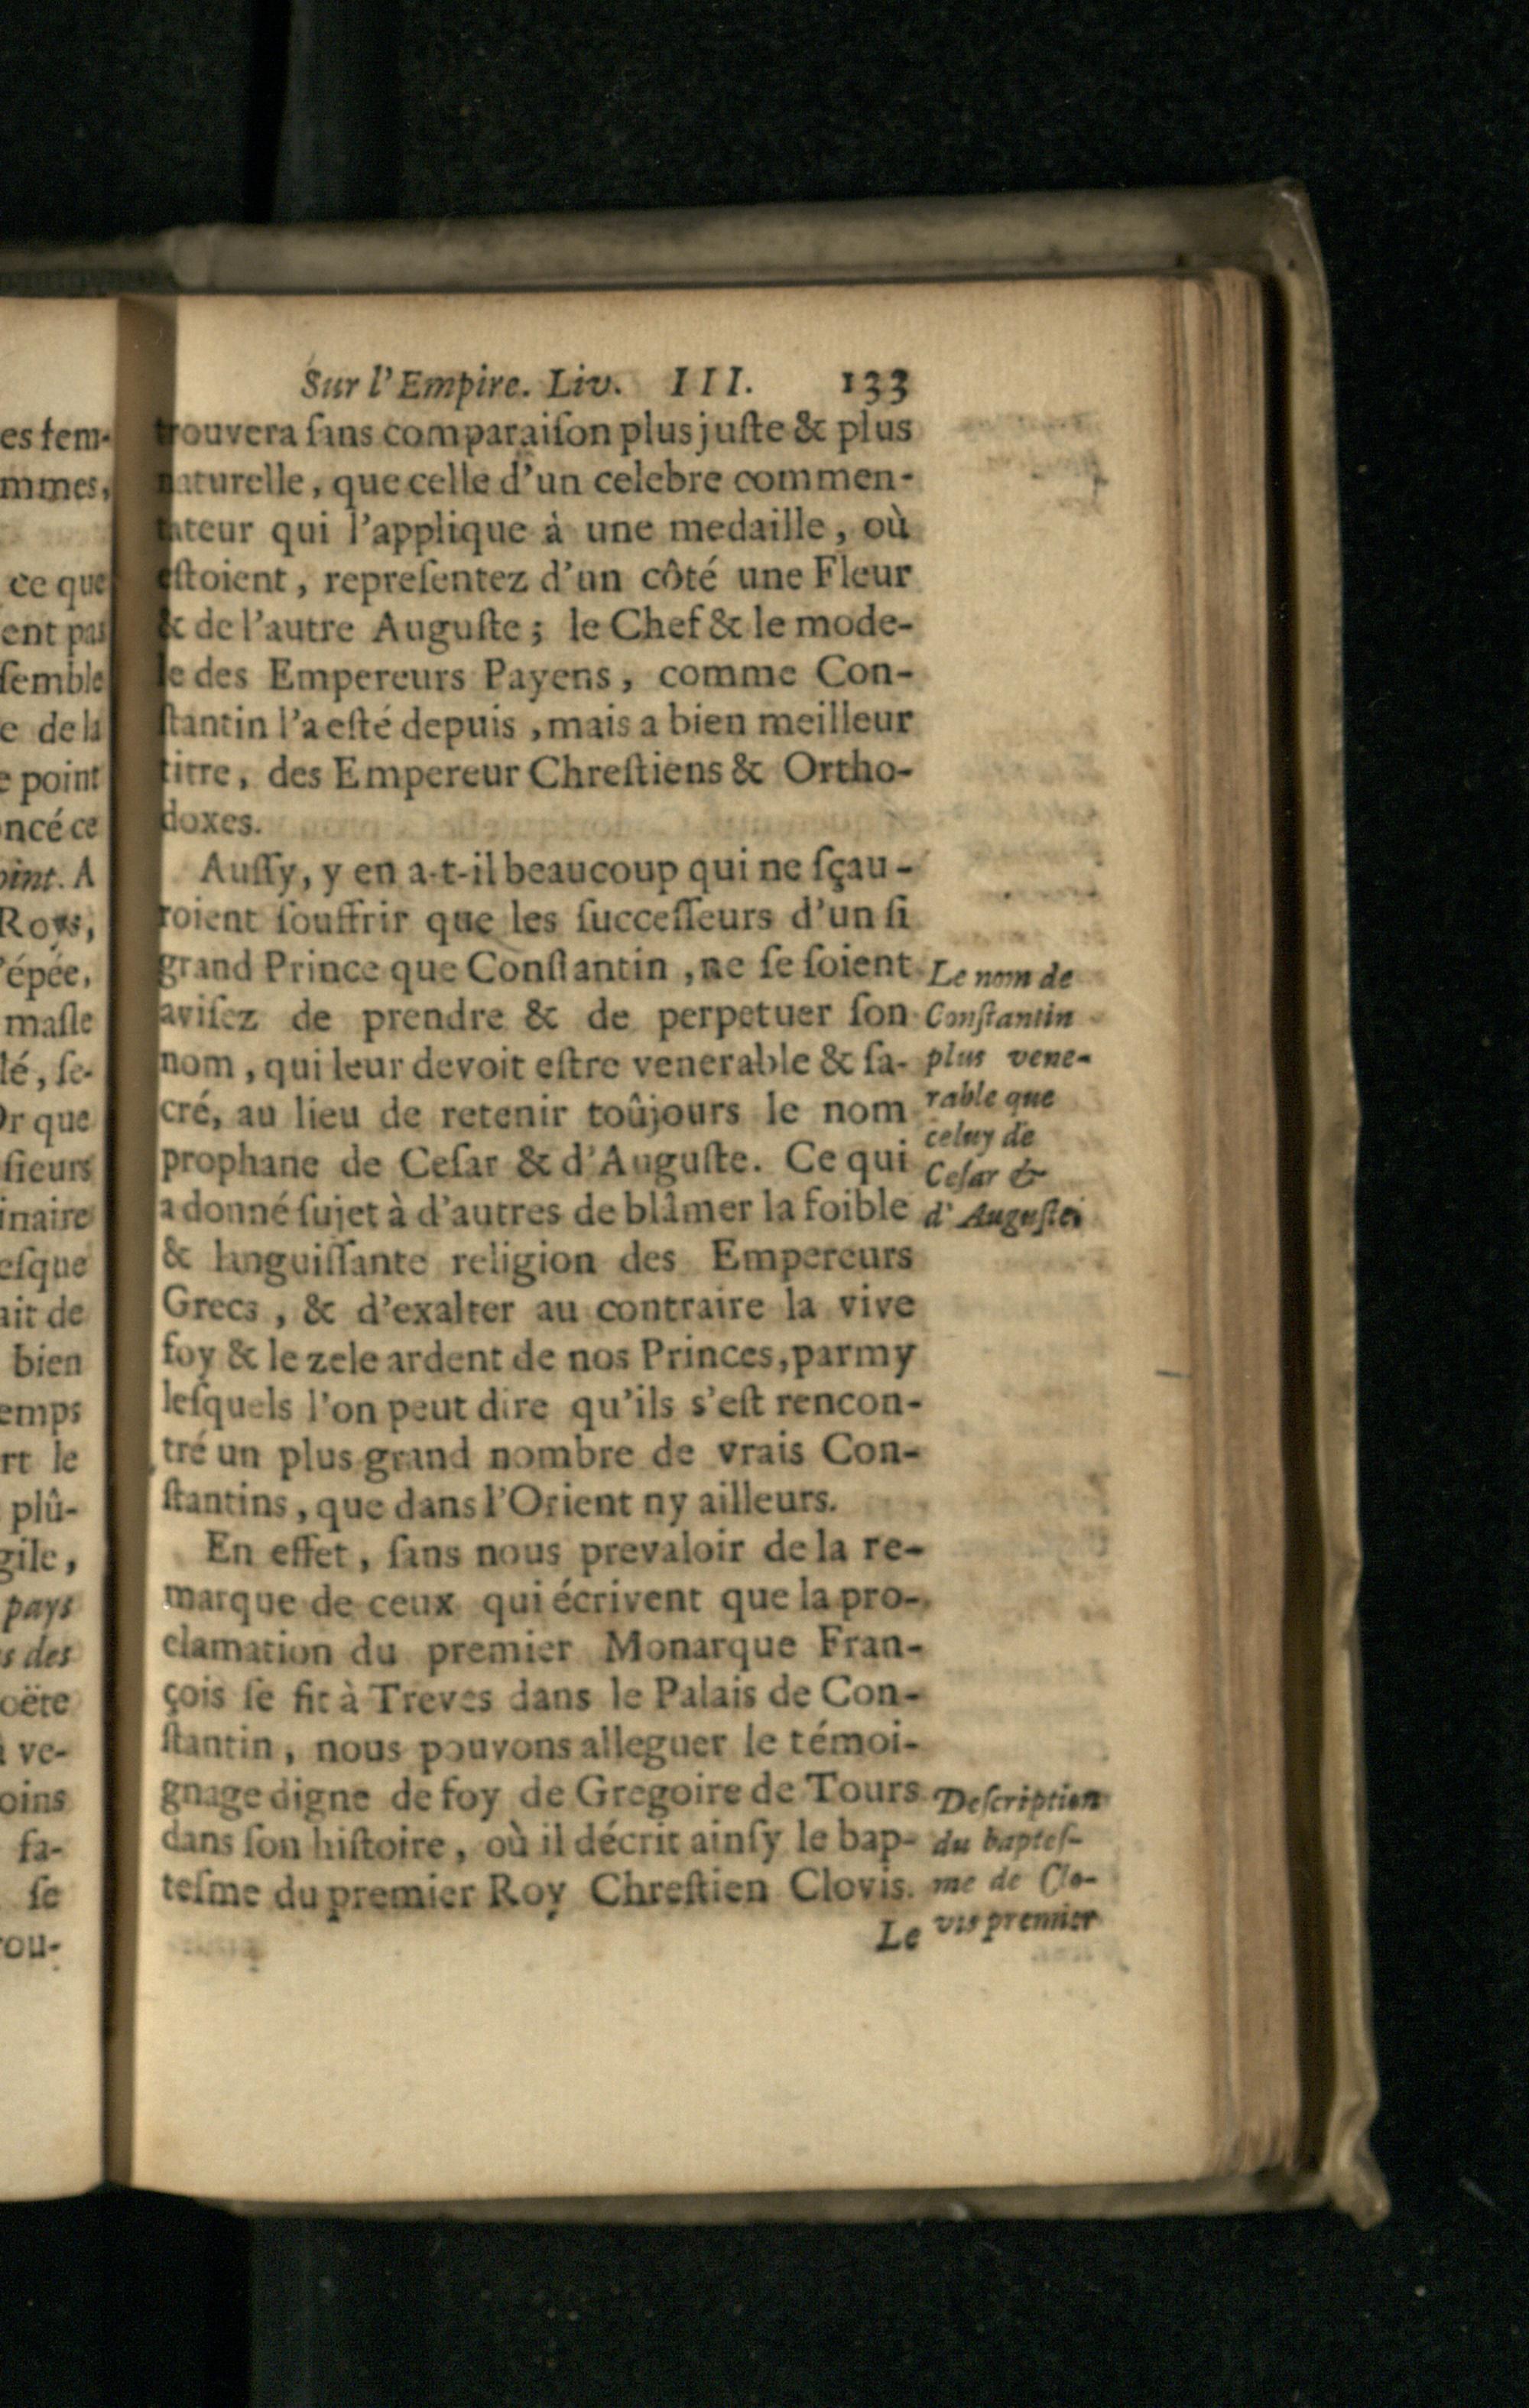 Sur l'Empire. Liv. III. 133
trouvera sans comparaiſon plus juſte & plus
naturelle, que celle d'un celebre commen-
tateur qui l'applique à une medaille, où
eſtoient, repreſentez d'un côté une Fleur
& de l'autre Auguſte; le Chef & le mode-
le des Empereurs Payens, comme Con-
ſtantin l'a eſté depuis, mais a bien meilleur
titre, des Empereur Chreſtiens & Ortho-
doxes.
Auſſy, y en a-t-il beaucoup qui ne ſçau-
roient ſouffrir que les ſucceſſeurs d'un ſi
grand Prince que Conſtantin, ne ſe ſoient
aviſez de prendre & de perpetuer ſon
nom, qui leur devoit eſtre venerable & ſa-
cré, au lieu de retenir toûjours le nom
prophane de Ceſar & d'Auguſte. Ce qui
a donné ſujet à d'autres de blâmer la foible
& languiſſante religion des Empereurs
Grecs, & d'exalter au contraire la vive
foy & le zele ardent de nos Princes, parmy
leſquels l'on peut dire qu'ils s'eſt rencon-
tré un plus grand nombre de vrais Con-
ſtantins, que dans l'Orient ny ailleurs.
En effet, ſans nous prevaloir de la re-
marque de ceux qui écrivent que la pro-
clamation du premier Monarque Fran-
çois ſe fit à Treves dans le Palais de Con-
ſtantin, nous pouvons alleguer le témoi-
gnage digne de foy de Gregoire de Tours
dans ſon hiſtoire, où il décrit ainſy le bap-
teſme du premier Roy Chreſtien Clovis.
Le
Le nom de
Conſtantin
plus vene-
rable que
celuy de
Ceſar &
d'Auguſte.
Deſcription
du bapteſ-
me de Clo-
vis premier